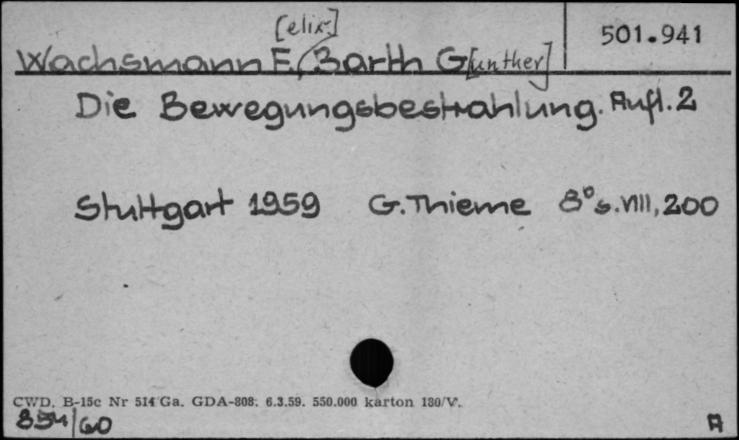 [elix]
501.941
Wachsmann F./Barth G[unther]
Die Bewegungsbestrahlung. Aufl. 2
Stuttgart 1959 G. Thieme 8° s. VIII, 200
CWD, B-15c Nr 514 Ga. GDA-808. 6.3.59. 550.000 karton 180/V.
834/60
A